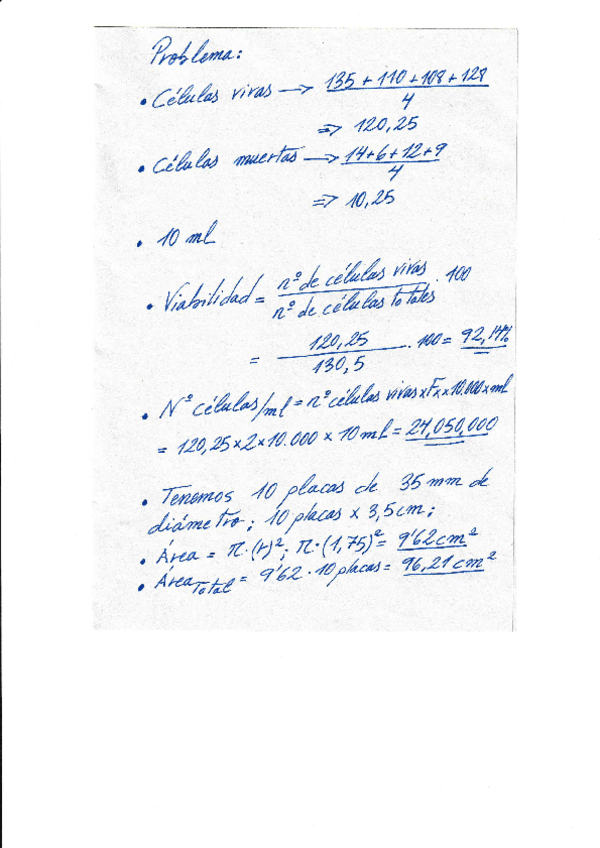 Problema:
• Células vivas → 135 + 110 + 108 + 128
4
⇒ 120,25
• Células muertas → 14+6+12+9
4
⇒ 10,25
• 10 ml
• Viabilidad = nº de células vivas . 100
nº de células totales
= 120,25 . 100 = 92,14%
130,5
• Nº células/ml = nº células vivas x Fx x 10.000 x ml
= 120,25 x 2 x 10.000 x 10 ml = 24,050,000
• Tenemos 10 placas de 35 mm de
diámetro; 10 placas x 3,5cm;
• Área = π·(r)²; π·(1,75)² = 9'62cm²
• Área Total = 9'62 · 10 placas = 96,21 cm²